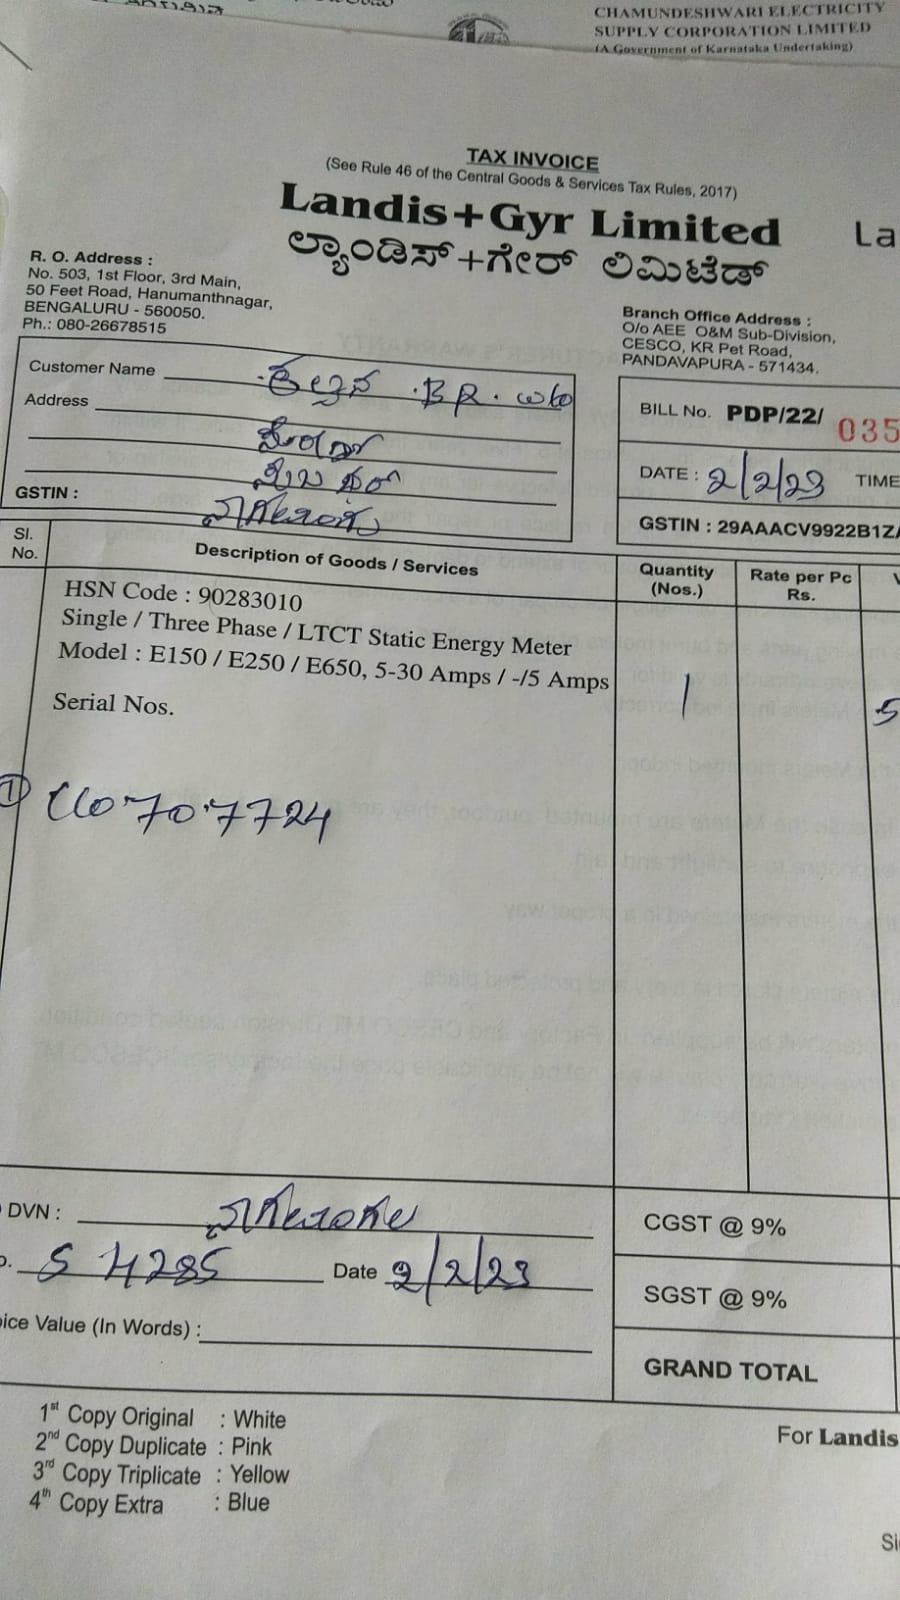 CHAMUNDESHWARI ELECTRICITY
SUPPLY CORPORATION LIMITED
(A Government of Karnataka Undertaking)
TAX INVOICE
(See Rule 46 of the Central Goods & Services Tax Rules, 2017)
Landis+Gyr Limited
La
ಲ್ಯಾಂಡಿಸ್+ಗೇರ್ ಲಿಮಿಟೆಡ್
R. O. Address :
No. 503, 1st Floor, 3rd Main,
50 Feet Road, Hanumanthnagar,
BENGALURU - 560050.
Ph.: 080-26678515
Branch Office Address :
O/o AEE O&M Sub-Division,
CESCO, KR Pet Road,
PANDAVAPURA - 571434.
Customer Name B R. w/o
Address
GSTIN :
BILL No. PDP/22/ 035
DATE : 2/2/23 TIME
GSTIN : 29AAACV9922B1ZA
Sl. No. Description of Goods / Services Quantity (Nos.) Rate per Pc Rs. V
HSN Code : 90283010
Single / Three Phase / LTCT Static Energy Meter
Model : E150 / E250 / E650, 5-30 Amps / -/5 Amps 1 5
Serial Nos.
DVN :
S 4285 Date 2/2/23
ice Value (In Words) :
CGST @ 9%
SGST @ 9%
GRAND TOTAL
1st Copy Original : White
2nd Copy Duplicate : Pink
3rd Copy Triplicate : Yellow
4th Copy Extra : Blue
For Landis
Si